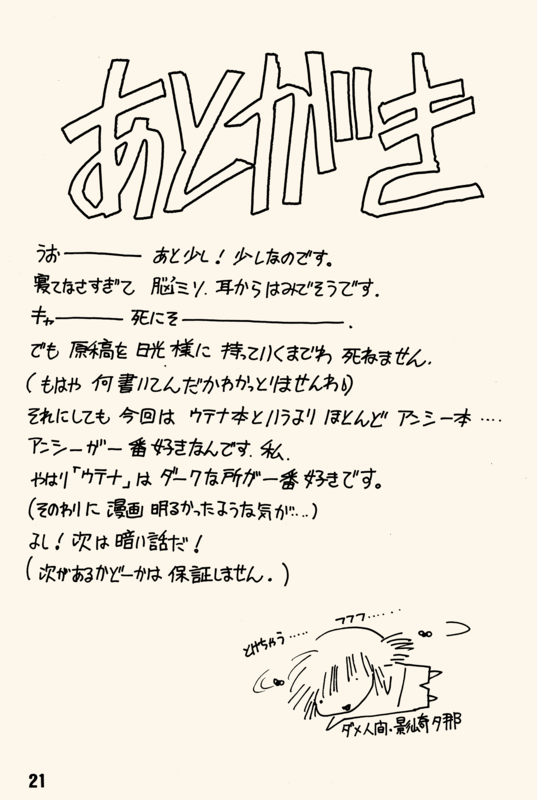 あとがき
うおーーーー あと少し！少しなのです。
寝てなさすぎて 脳ミソ、耳からはみでそうです。
キャーーーー 死にそーーーーーーーー.
でも 原稿を 日光様に 持っていくまでわ 死ねません.
(もはや 何書いてんだかわかっとりませんわり)
それにしても 今回は ウテナ本というより ほとんど アンシー本 ‥‥
アンシーが一番好きなんです. 私.
やはり「ウテナ」は ダークな所が一番好きです。
(そのわりに 漫画 明るかったような気が…)
よし！次は 暗い話だ！
(次があるかどーかは 保証しません。)
フフフ‥‥‥
とけちゃう‥‥‥
ダメ人間・影崎夕那
21